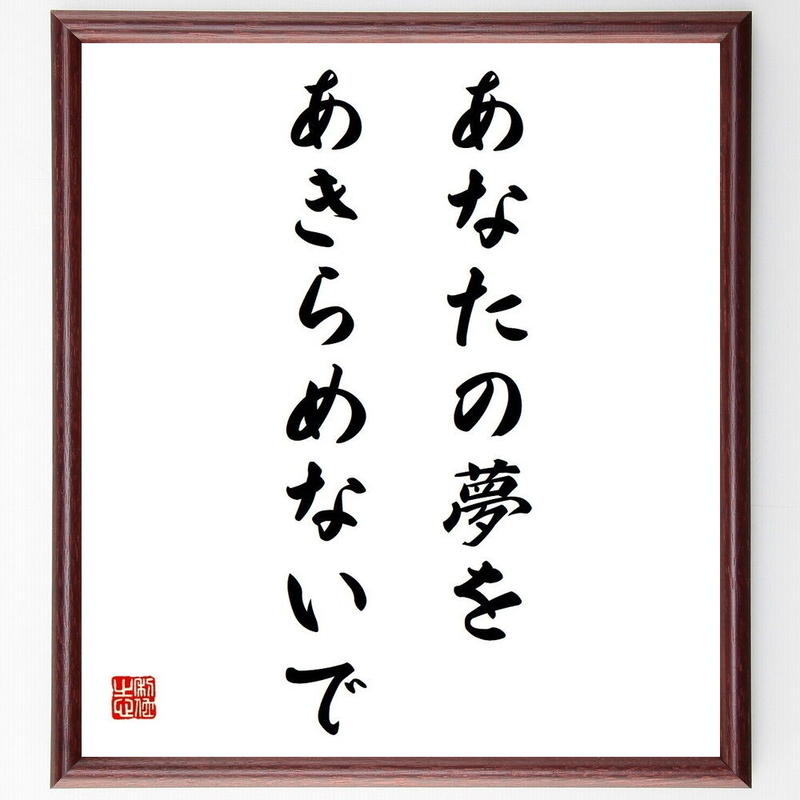 あなたの夢を
あきらめないで